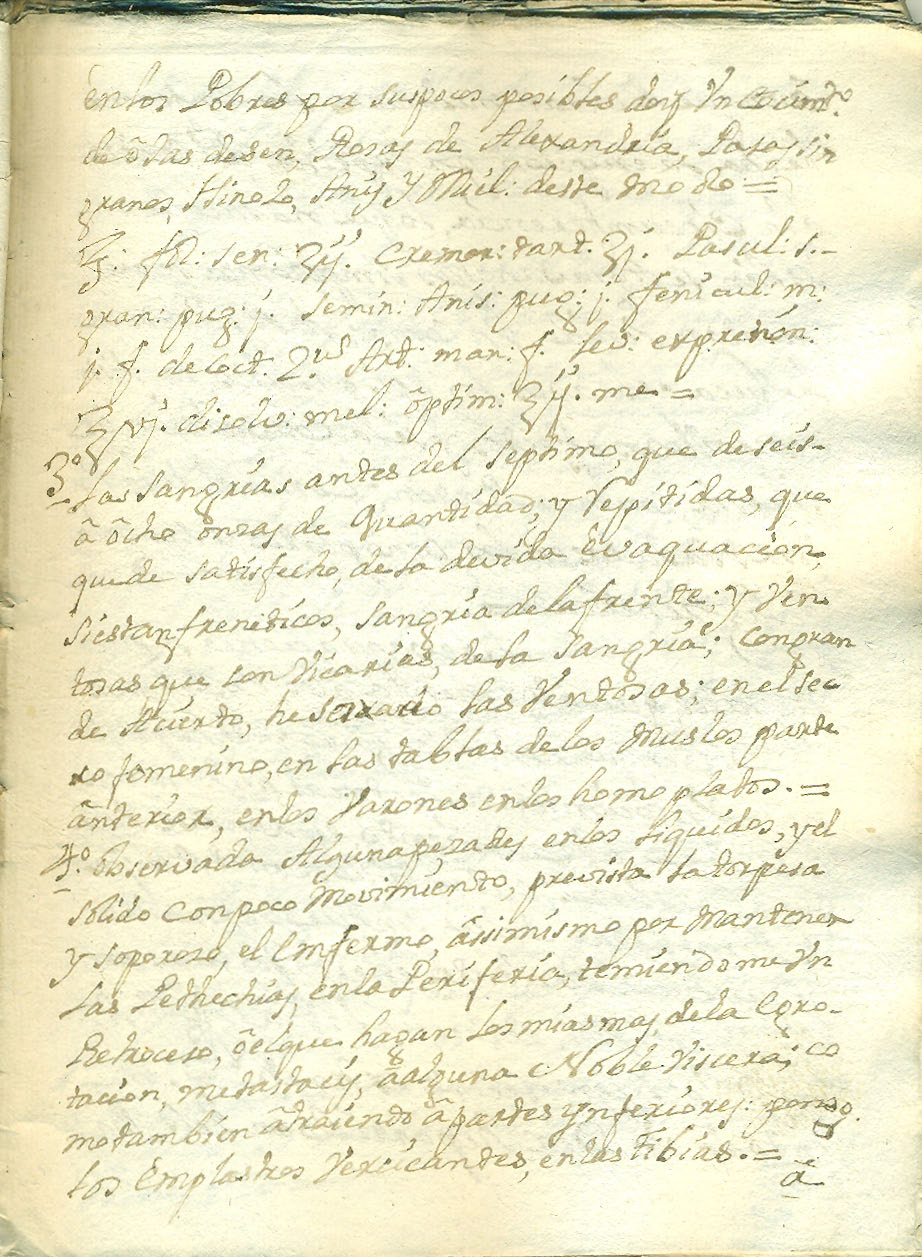 en los Pobres por sus pocos posibles doy Un Cocimto.
de ôJas de Sen, Rosas de Alexandria, Pasas sin
granos, Hinojo, Anis y Miel: deste modo =
fol: Sen: ʒij. Cremor: tart. ʒj. Pasul: s.-
gran: pug: j. Semin: Anis: pug: j. fenicul: m:
j. f. decoct. Art: man: f. lev: expresion:
℥vj. disolv: mel: ôptim: ℥ij. me =
3.º Las Sangrias antes del Septimo, que de seis-
â ôcho ônzas de Quantidad; y Repitidas, que
quede satisfecho, de la devida Evaquacion,
si estan freneticos, Sangria de la frente; y Ven
tosas que son Vicarias, de la Sangria; Con gran
de Acierto, he las Ventosas; en el Sec
xo femenino, en las tablas de los Muslos parte
ânterior, en los Varones en los homoplatos. =
4.º Observada Alguna pezades en los liquidos, y el
solido con poco Movimiento, prevista la torpesa
y soporoso, el Emfermo, âssimismo por Mantener
las Pethechias, en la Periferia, temiendome Un
Retroceso, ô el que hagan los miasmas, de la
tacion, metastacis, â alguna Noble Viscera; co
mo tambien âtraiendo â partes ynferiores: pongo.
los Emplastros Vexicantes, en las tibias. =
â